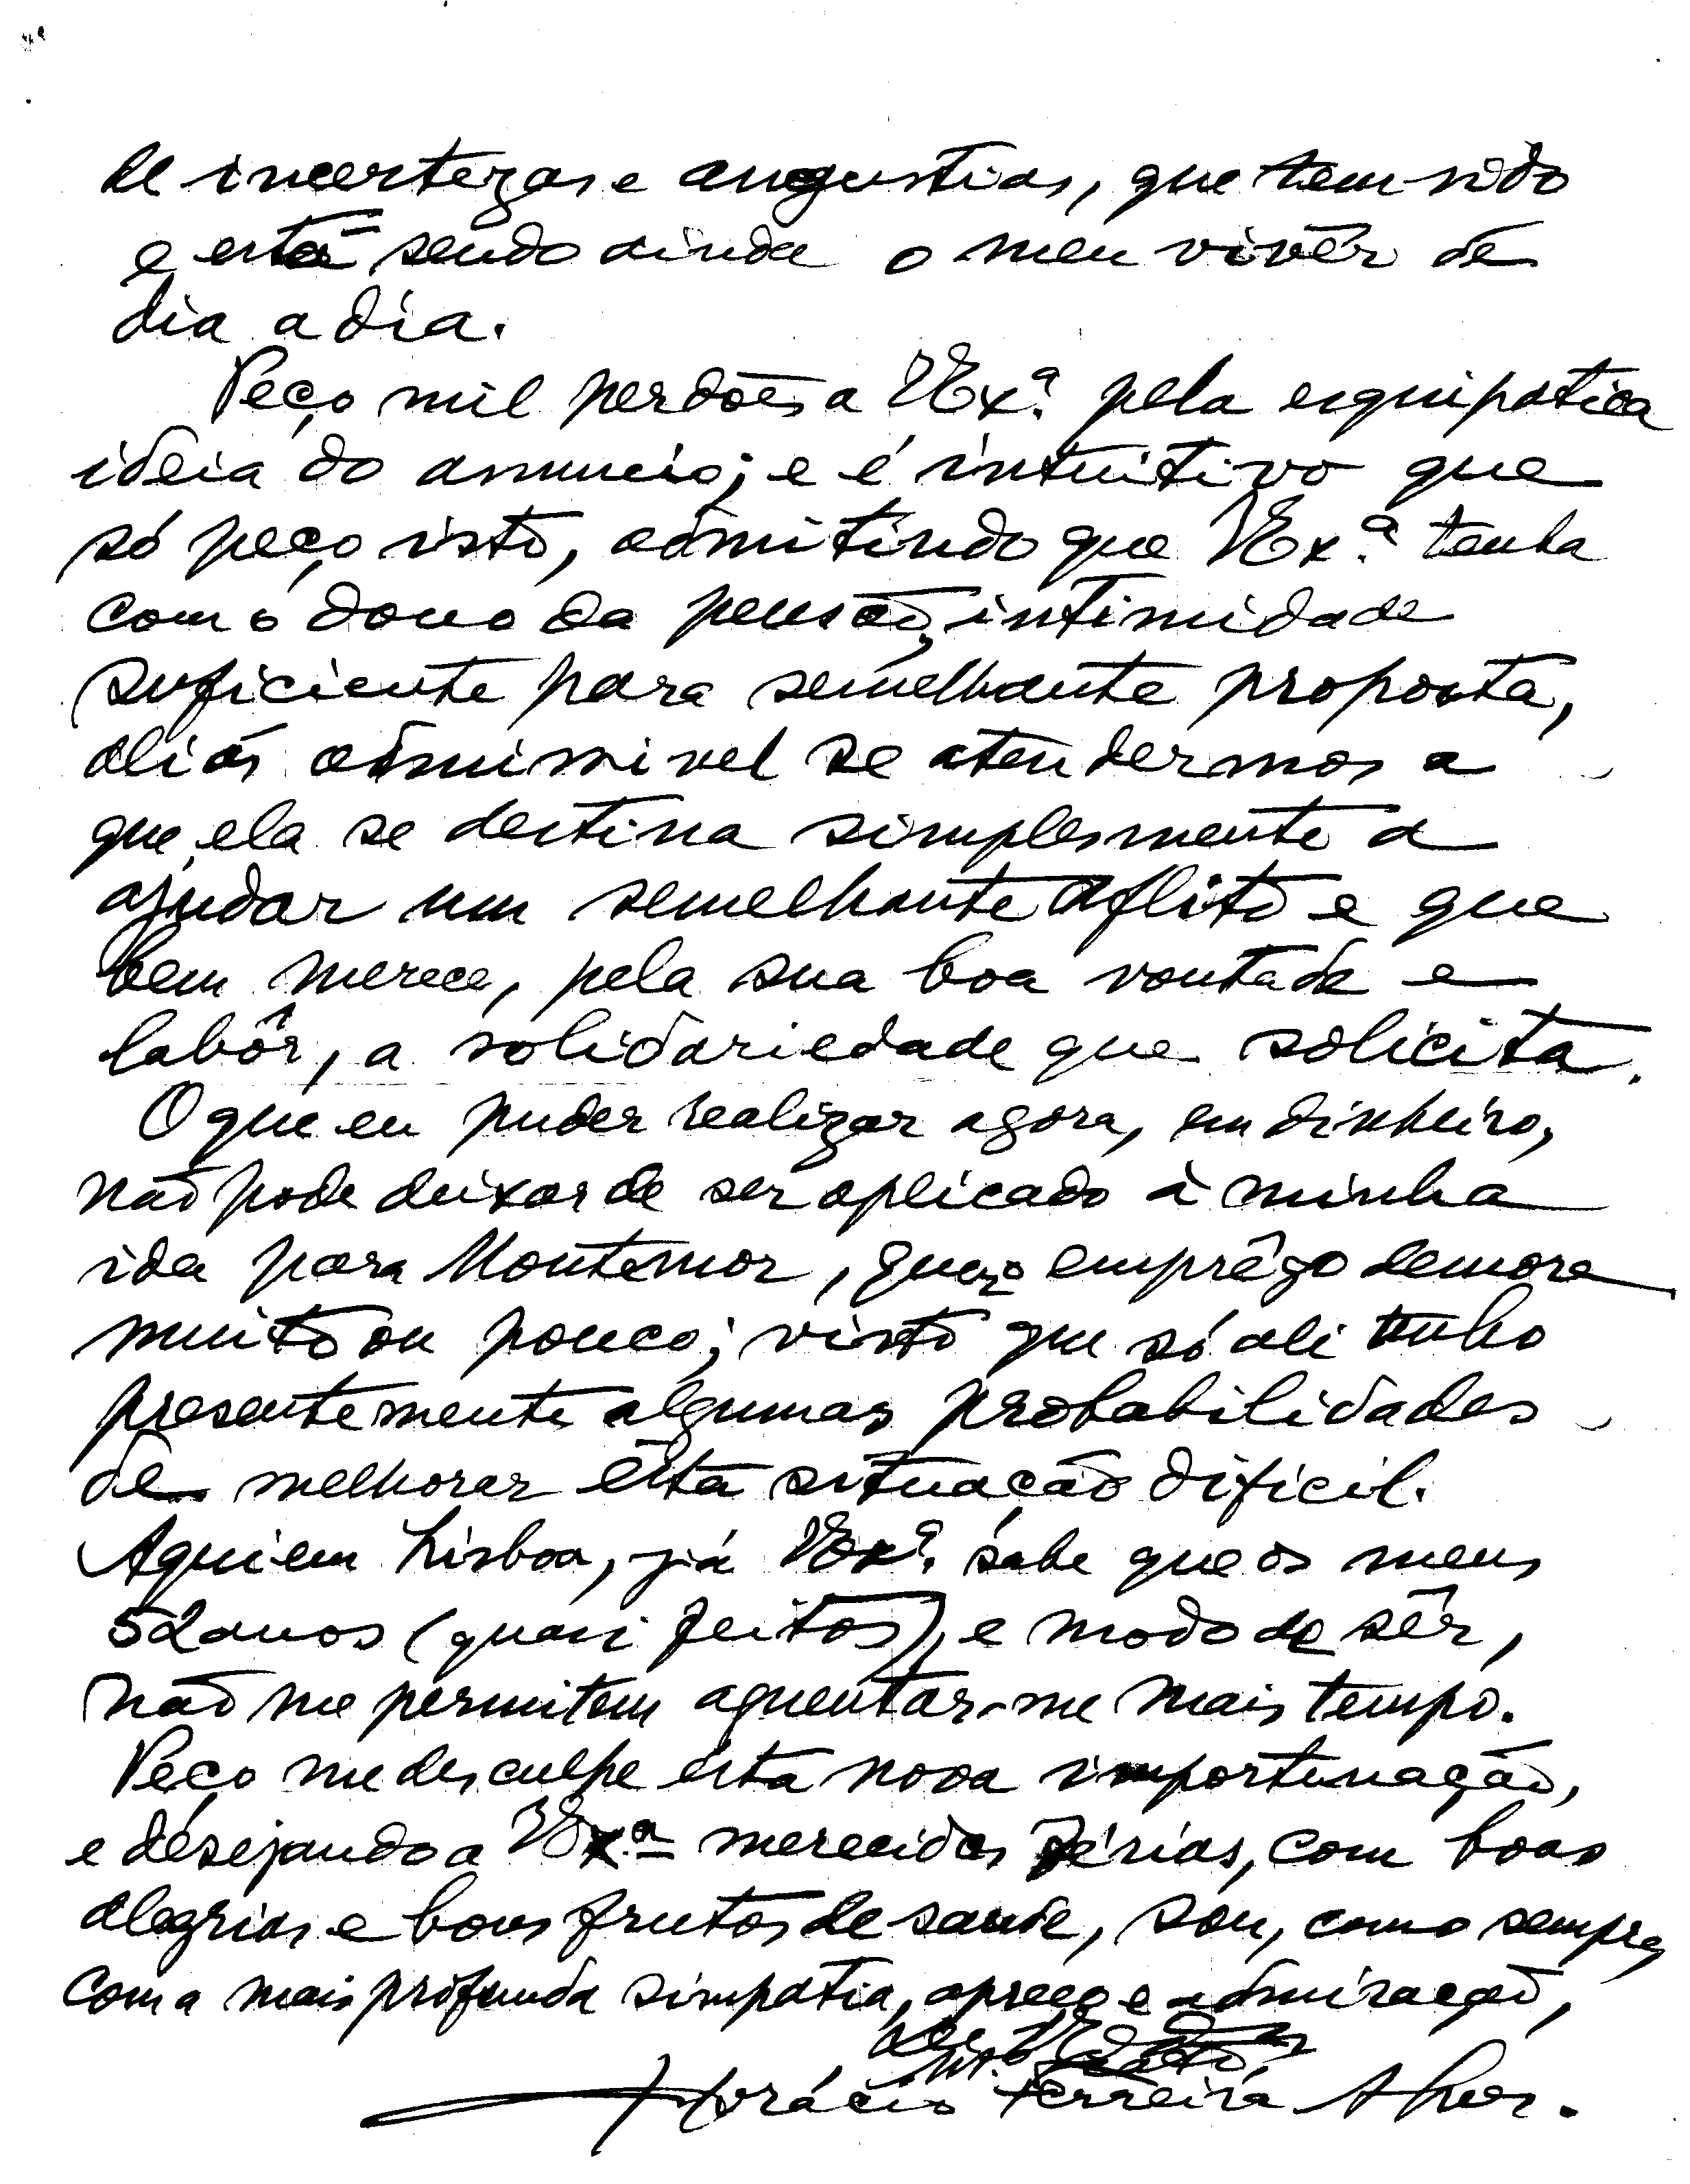 de incertezas e angustias, que tem sido
e está sendo ainda o meu vivêr de
dia a dia.
Peço mil perdões a VExª. pela esquipatica
ideia do anuncio; e é intuitivo que
só peço isto, admitindo que VExª. tenha
com o dono da pensão, intimidade
suficiente para semelhante proposta,
aliás admissivel se atendermos a
que ela se destina simplesmente a
ajudar um semelhante aflito e que
bem merece, pela sua boa vontade e
labôr, a solidariedade que solicita.
O que eu puder realizar agora, em dinheiro,
não pode deixar de ser aplicado à minha
ida para Montemor, quer o emprêgo demore
muito ou pouco; visto que só ali tenho
presentemente algumas probabilidades
de melhorar esta situação dificil.
Aqui em Lisboa, já VExª. sabe que os meus
52 anos (quasi feitos), e modo de sêr,
não me permitem aguentar-me mais tempo.
Peço me desculpe esta nova importunação,
e desejando a VExª merecidas férias, com boas
alegrias e bons frutos de saude, sou, como sempre,
com a mais profunda simpatia, apreço e admiração,
de VExª
mto. grato,
Horácio Ferreira